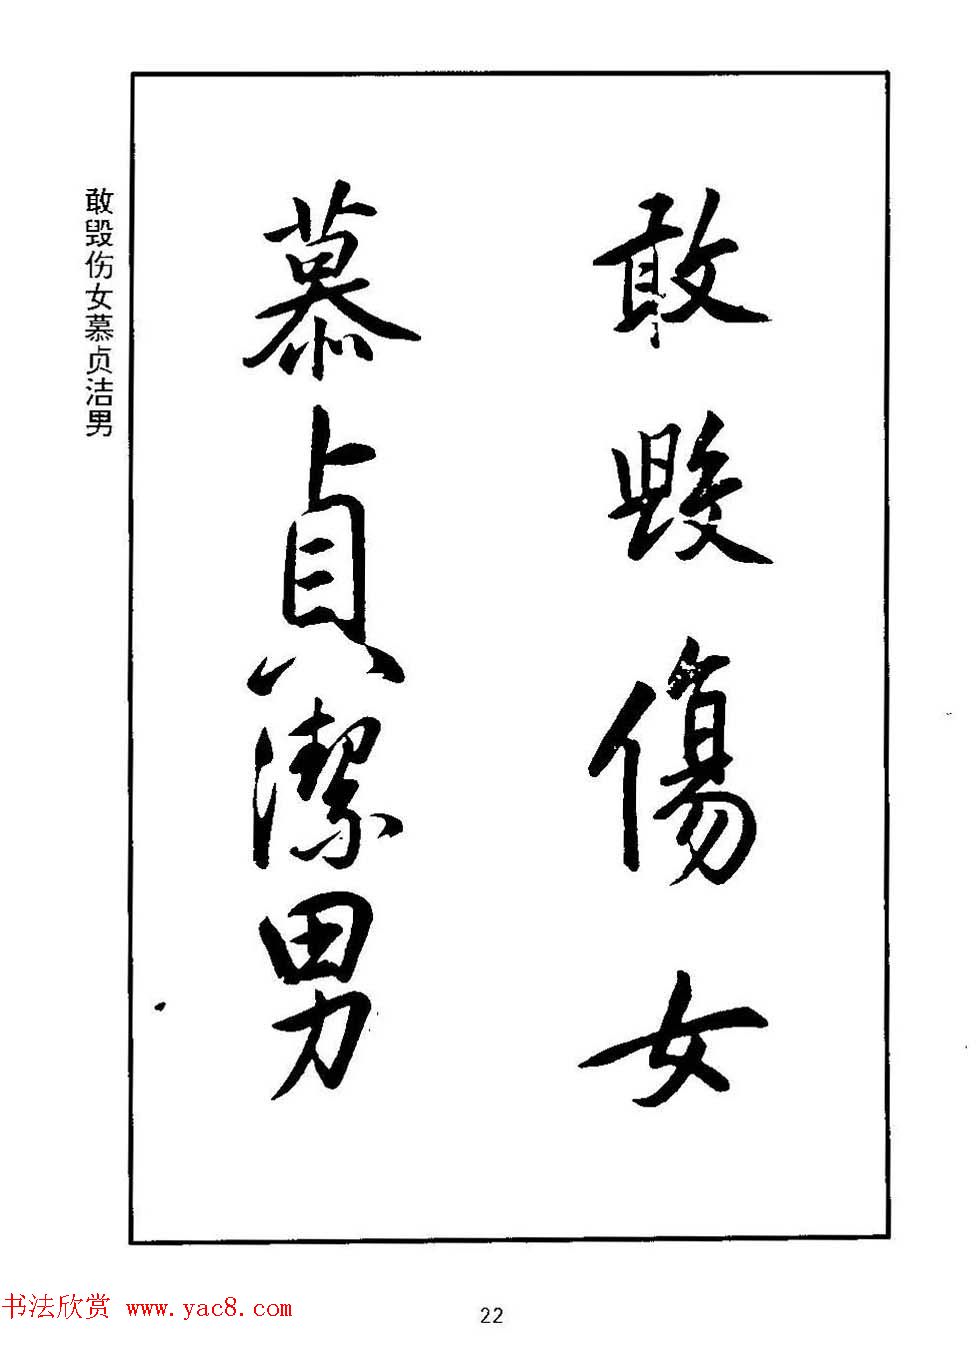 敢毀傷女
慕貞潔男
敢毁伤女慕贞洁男
书法欣赏 www.yac8.com
22